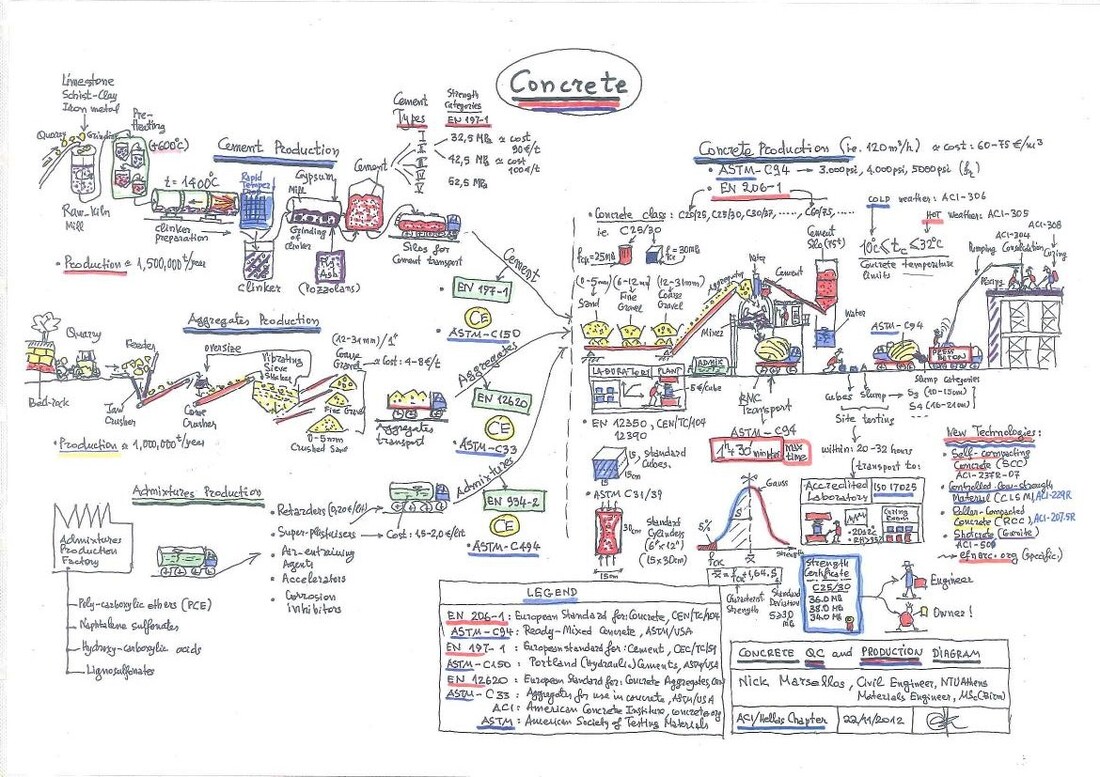 Concrete
Limestone
Schist-Clay
Iron metal
Quarry
Grinding
Pre-
Heating
(+600°C)
Raw-Kiln
Mill
Cement Production
t = 1400°C
clinker
preparation
Rapid
clinker
Gypsum
Mill
Grinding
of
clinker
Fly
Ash
(Pozzolans)
Cement
Silos for
Cement transport
Cement
Types
I
II
III
IV
V
Strength
Categories
EN 197-1
32,5 MPa ≈ cost
90€/t
42,5 MPa ≈ cost
100€/t
52,5 MPa
• Production ≈ 1,500,000 t/year
Cement
• EN 197-1
CE
• ASTM-C150
Aggregates Production
Quarry
Feeder
Bed-rock
Jaw
Crusher
oversize
Cone
Crusher
Vibrating
Sieve
Shaker
(12-31mm)/1"
Coarse
Gravel
Fine Gravel
0-5mm
Crushed Sand
≈ Cost: 4-8€/t
Aggregates
transport
• Production ≈ 1,000,000 t/year
Aggregates
• EN 12620
CE
• ASTM-C33
Admixtures Production
Admixtures
Production
Factory
Poly-carboxylic ethers (PCE)
Naphtalene sulfonates
Hydroxy-carboxylic acids
Lignosulfonates
• Retarders (0,20€/lit)
• Super-plastisers
→ Cost: 1,5-2,0€/lit
• Air-entraining
Agents
• Accelerators
• Corrosion
inhibitors
Admixtures
• EN 934-2
CE
• ASTM-C494
Concrete Production (i.e. 120m³/h) ≈ cost: 60-75€/m³
• ASTM-C94 → 3.000psi, 4.000psi, 5000psi
• EN 206-1
• Concrete class: C20/25, C25/30, C30/37, ......, C60/75, .....
i.e. C25/30
fck=25MPa
fc=30MPa
(0-5mm)
(6-12mm)
(12-31mm)
Sand
Fine
Gravel
Coarse
Gravel
Aggregates
Water
Cement
Mixer
Cement
Water
ADMIX
LABORATORY PLANT
5€/cube
• EN 12350, CEN/TC/104
12390
15
15cm
Standard
Cubes.
• ASTM C31/39
30cm
15cm
Standard
Cylinders
(6"x12")
(15x30cm)
COLD weather: ACI-306
HOT weather: ACI-305
10°C ≤ tc ≤ 32°C
Concrete temperature
limits
ACI-304
ACI-308
Pumping
Consolidation
Curing
Placing
ASTM-C94
RMC
Transport
ASTM-C94
1h+30 minutes
max
time
Cubes
Slump
Site testing
Slump Categories
S3 (10-15cm)
S4 (16-21cm)
within: 20-32 hours
transport to:
Accredited
Laboratory
ISO 17025
Curing
Room
Gauss
S
5%
fck
x̄
strength
x̄ = fck + 1,64.S
Characterist
Strength
Standard
Deviation
Strength
Certificate
C25/30
36.0 MB
38.0 MB
34.0 MB
Engineer
Owner!
New Technologies:
• Self-compacting
Concrete (SCC)
ACI-237R-07
• Controlled Low-strength
Material (CLSM), ACI-229R
• Roller-Compacted
Concrete (RCC), ACI-207.5R
• Shotcrete (Gunite)
ACI-506
→ efnarc.org (specific)
LEGEND
EN 206-1: European Standard for: Concrete, CEN/TC/104
ASTM-C94: Ready-Mixed Concrete, ASTM/USA
EN 197-1: European standard for: Cement, CEC/TC/51
ASTM-C150: Portland (Hydraulic) Cements, ASTM/USA
EN 12620: European Standard for: Concrete Aggregates,
ASTM-C33: Aggregates for use in concrete, ASTM/USA
ACI: American Concrete Institute, concrete.org
ASTM: American Society of Testing Materials
CONCRETE QC and PRODUCTION DIAGRAM
Nick Marsellos, Civil Engineer, NTUAthens
Materials Engineer,
ACI/Hellas Chapter
22/11/2012